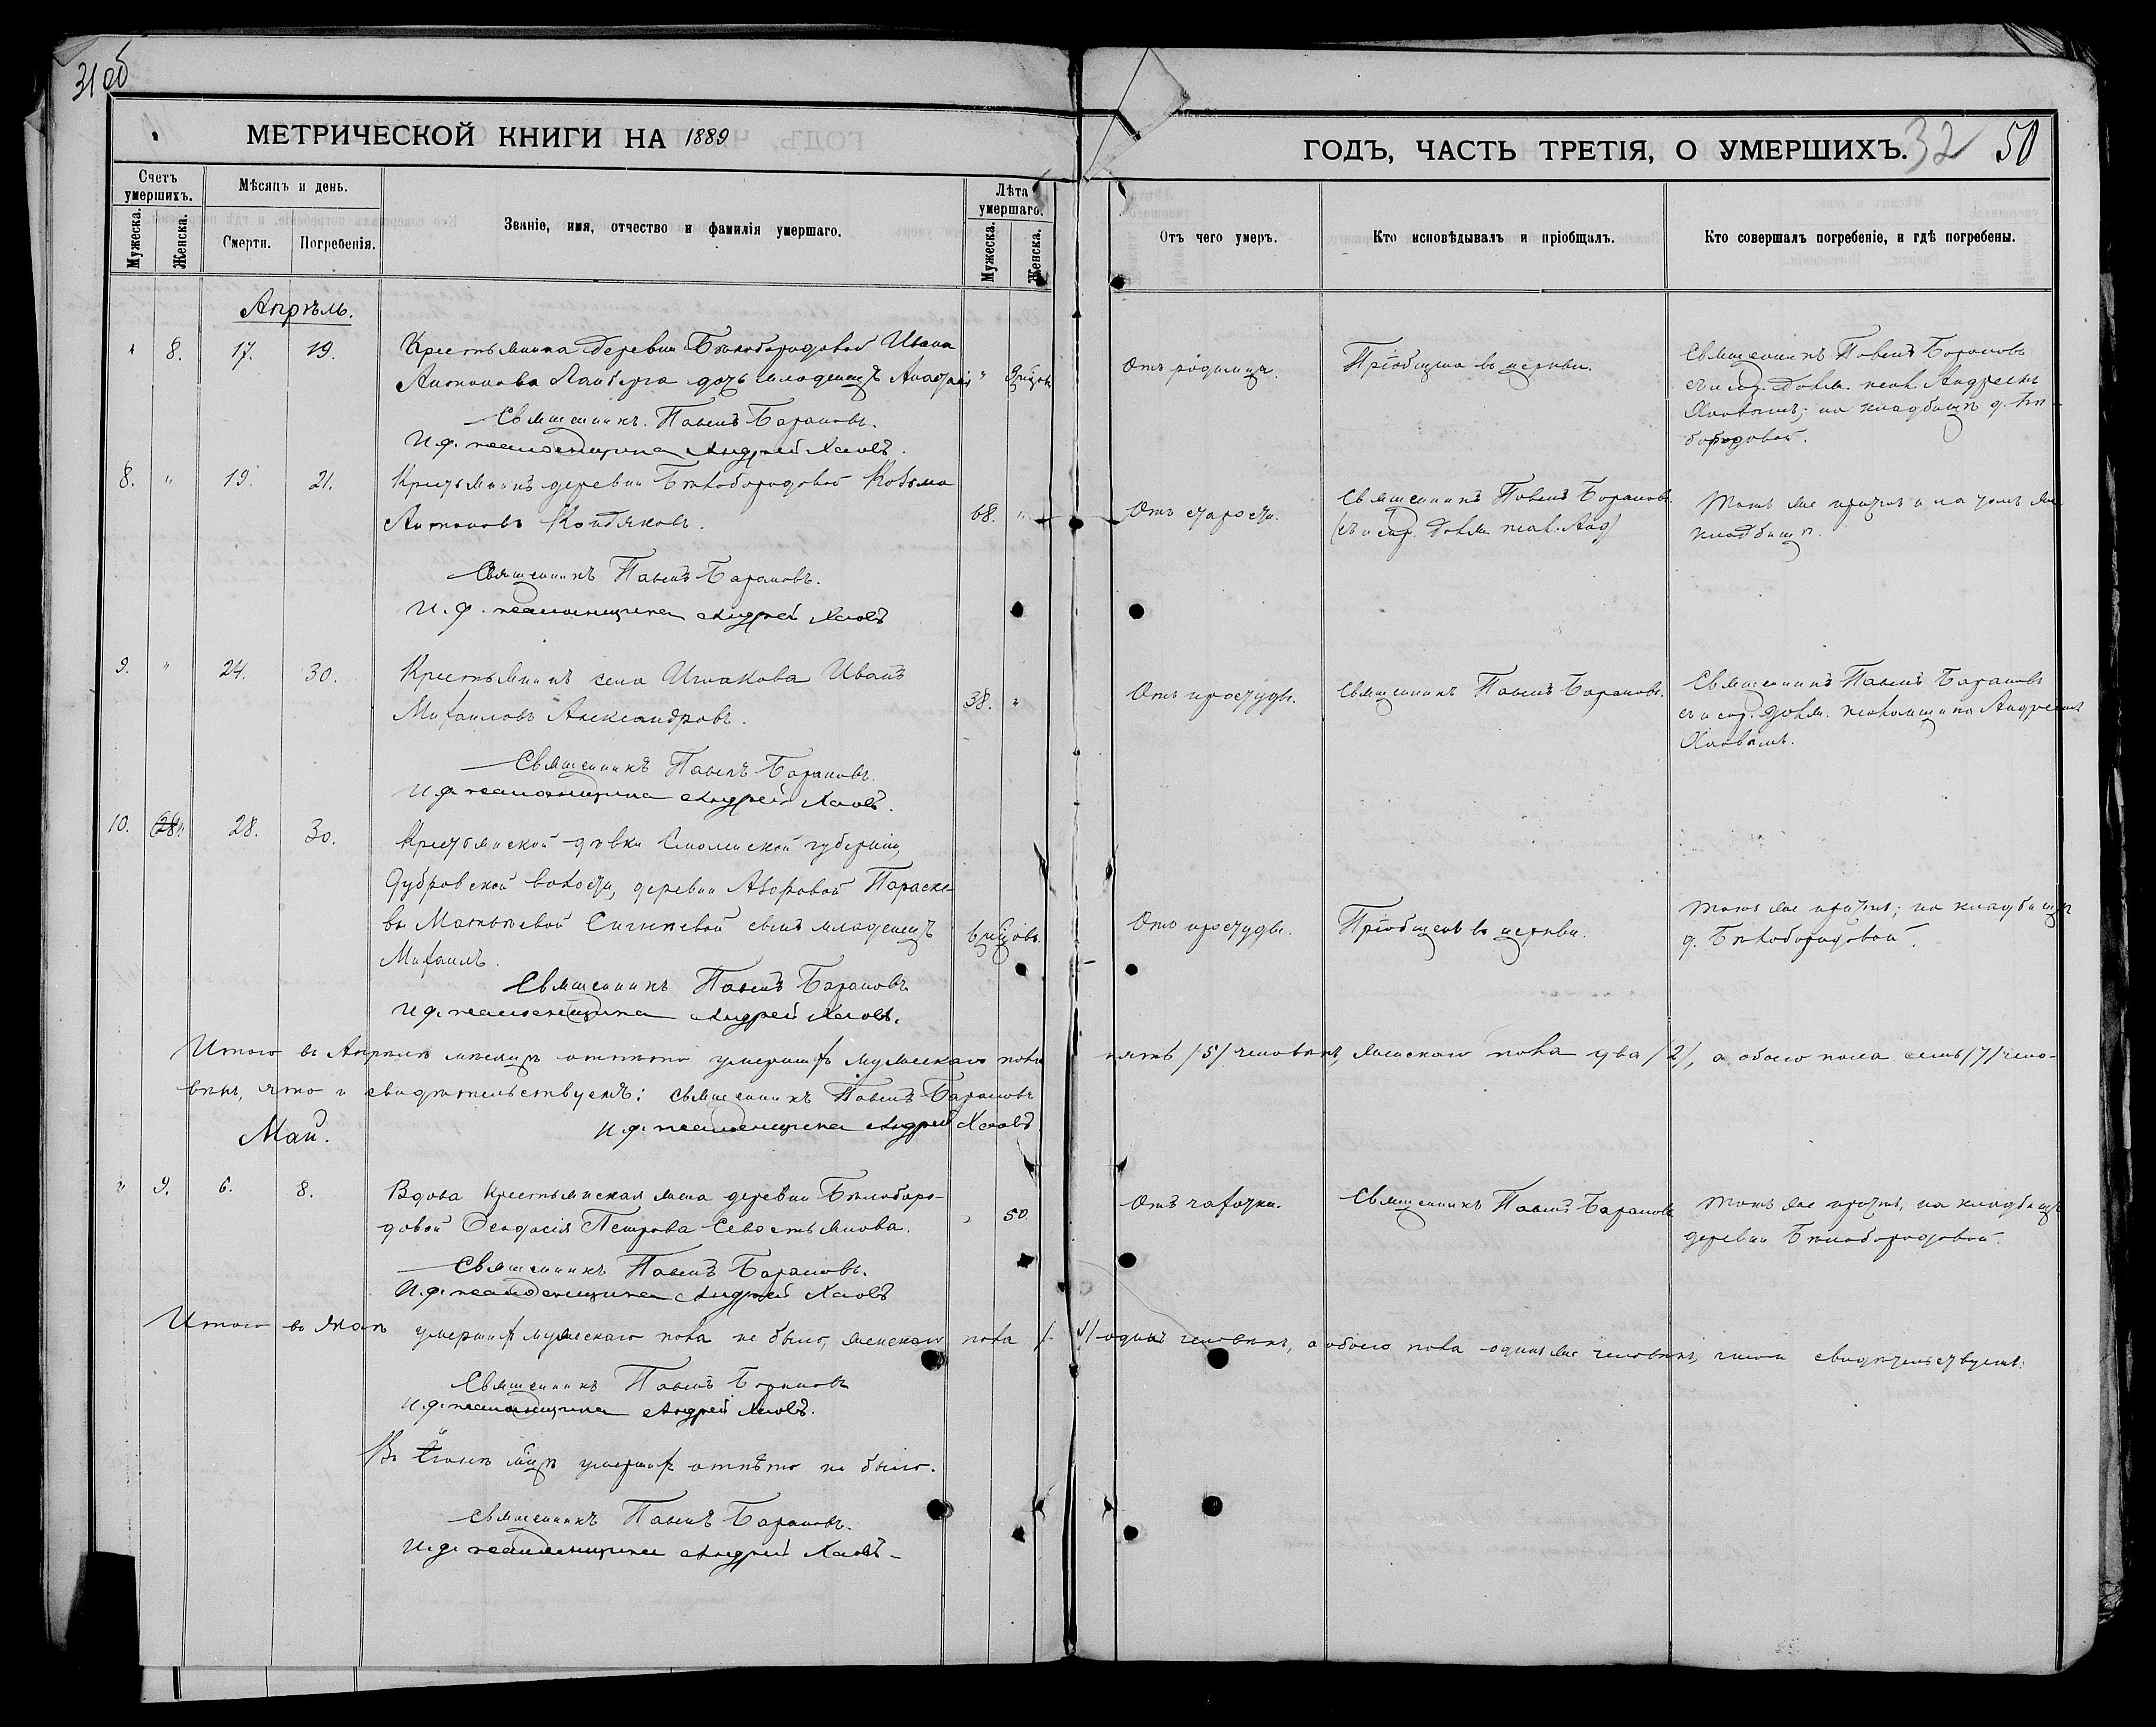 31 об
МЕТРИЧЕСКОЙ КНИГИ НА 1889
ГОДЪ, ЧАСТЬ ТРЕТІЯ, О УМЕРШИХЪ.
32 50
Счетъ умершихъ.
Мѣсяцъ и день.
Званіе, имя, отчество и фамилія умершаго.
Лѣта умершаго.
Мужеска.
Женска.
Смерти.
Погребенія.
Мужеска.
Женска.
Отъ чего умеръ.
Кто исповѣдывалъ и пріобщалъ.
Кто совершалъ погребеніе, и гдѣ погребены.
Апрѣль.
" 8. 17. 19.
Крестьянина деревни Бѣлобородовой Ивана
Антонова дочь младенецъ
Священникъ Павелъ Барановъ.
И. ф. псаломщика Андрей Хаовъ.
Отъ родимца.
Пріобщена въ церкви.
Священникъ Павелъ Барановъ
съ и. Андреемъ
на кладбищѣ д. Бѣ-
бородовой.
8. " 19. 21.
Крестьянинъ деревни Бѣлобородовой Козьма
Антоновъ
68. "
Священникъ Павелъ Барановъ.
И. ф. псаломщика Андрей Хаовъ
Отъ старости.
Священникъ Павелъ Барановъ
Тотъ же причтъ и на томъ же
кладбищѣ.
9. " 24. 30.
Крестьянинъ села Ишакова Иванъ
Михаиловъ Александровъ.
38. "
Священникъ Павелъ Барановъ.
И. ф. псаломщика Андрей Хаовъ.
Отъ простуды.
Священникъ Павелъ Барановъ.
Священникъ Павелъ Барановъ
съ и спр. долж. псаломщика Андреемъ
10. " 28. 30.
Крестьянской дѣвки Смоленской губерніи,
Дубровской волости, деревни Параске-
вы Матвѣевой сынъ младенецъ
Михаилъ.
Священникъ Павелъ Барановъ
И. ф. псаломщика Андрей Хаовъ.
Отъ простуды.
Пріобщенъ въ церкви.
Тотъ же причтъ; на кладбищѣ
д. Бѣлобородовой.
Итого въ Апрѣлѣ мѣсяцѣ отпѣто умершихъ мужескаго пола пять /5/ человѣкъ, женскаго пола два /2/, а обоего пола семь /7/ чело-
вѣкъ, что и свидѣтельствуемъ: священникъ Павелъ Барановъ
И. ф. псаломщика Андрей Хаовъ
Май.
" 9. 6. 8.
Вдова крестьянская жена деревни Бѣлоборо-
довой Ѳеодосія Петрова Севостьянова.
" 50.
Священникъ Павелъ Барановъ.
И. ф. псаломщика Андрей Хаовъ
Отъ чахотки.
Священникъ Павелъ Барановъ
Тотъ же причтъ, на кладбищѣ
деревни Бѣлобородовой.
Итого въ Маѣ умершихъ мужескаго пола не было, женскаго пола /1/ одинъ человѣкъ, а обоего пола одинъ же человѣкъ, что и свидѣтельствуемъ:
Священникъ Павелъ Барановъ
И. ф. псаломщика Андрей Хаовъ.
Въ Іюнѣ м҃цѣ умершихъ отпѣто не было.
Священникъ Павелъ Барановъ.
И. ф. псаломщика Андрей Хаовъ